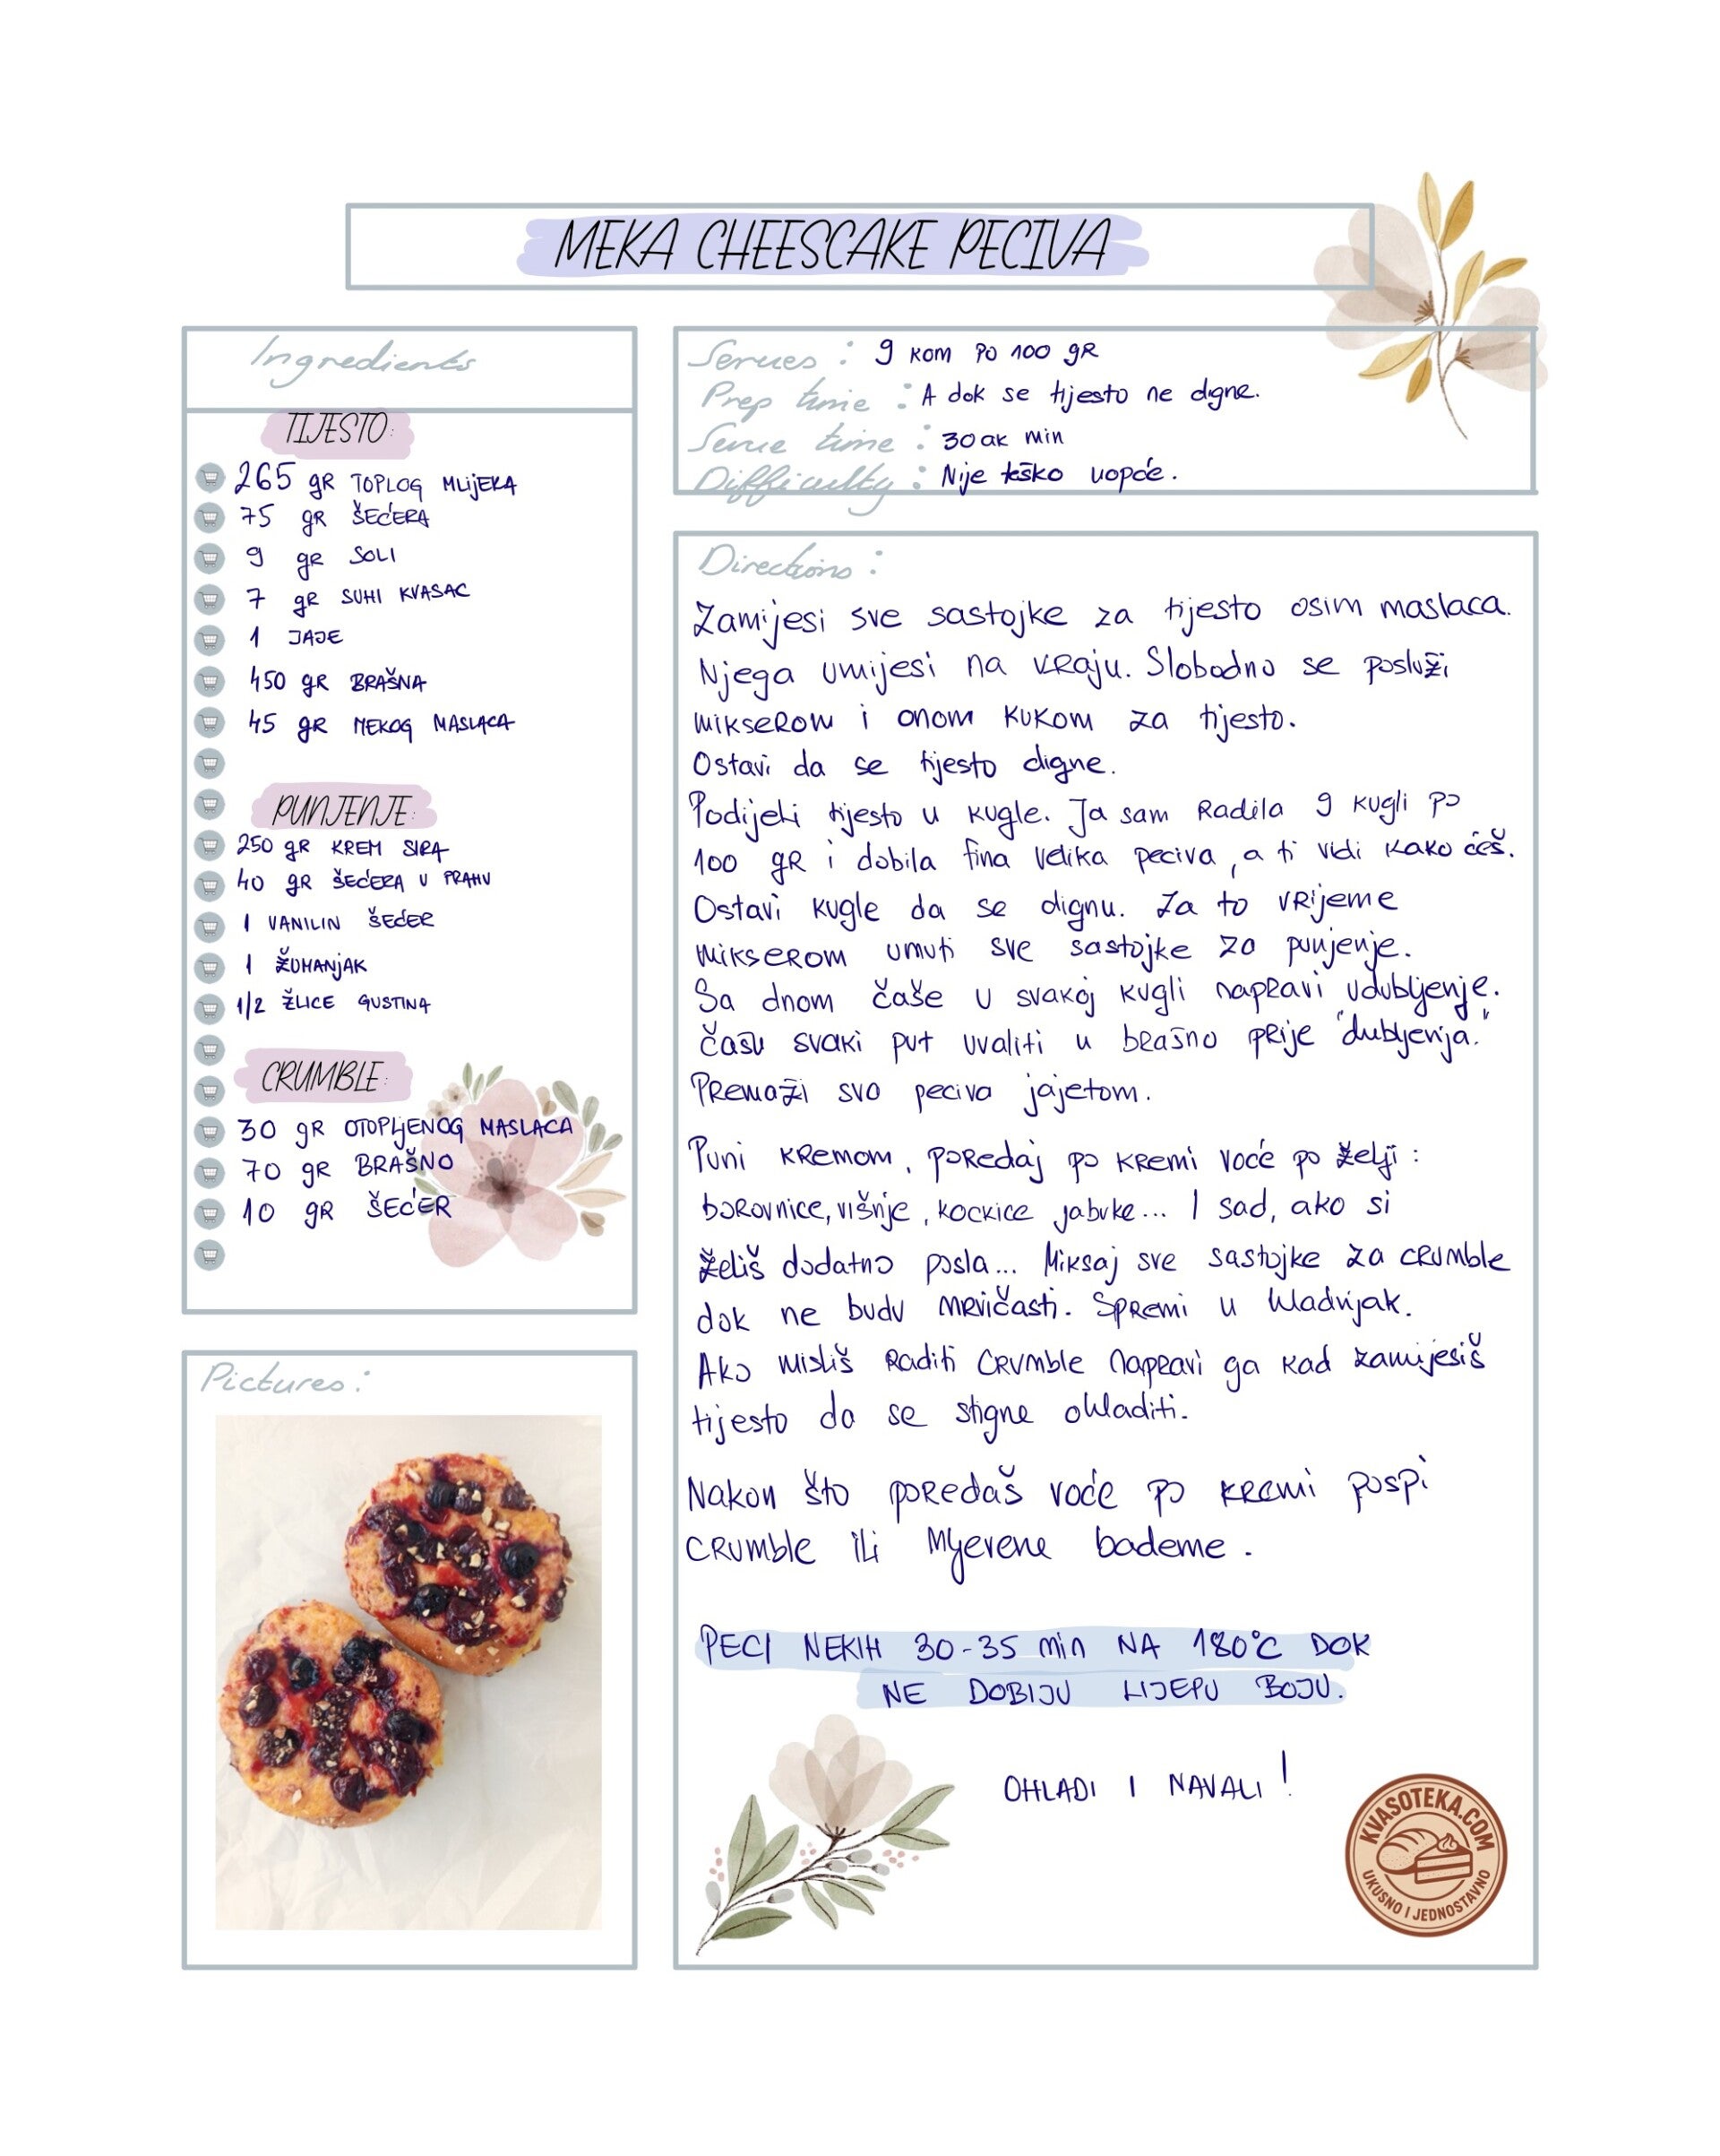 MEKA CHEESCAKE PECIVA
Ingredients
TIJESTO:
265 gR TOPLOG MLIJEKA
75 gR ŠEĆERA
9 gR SOLI
7 gR SUHI KVASAC
1 JAJE
450 gR BRAŠNA
45 gR MEKOG MASLACA
PUNJENJE:
250 gR KREM SIRA
40 gR ŠEĆERA U PRAHU
1 VANILIN ŠEĆER
1 ŽUMANJAK
1/2 ŽLICE GUSTINA
CRUMBLE:
30 gR OTOPLJENOG MASLACA
70 gR BRAŠNO
10 gR ŠEĆER
Pictures:
Serves: 9 kom po 100 gR
Prep time: A dok se tijesto ne digne.
Serve time: 30ak min
Difficulty: Nije teško uopće.
Directions:
Zamijesi sve sastojke za tijesto osim maslaca.
Njega umijesi na kraju. Slobodno se posluži
mikserom i onom kukom za tijesto.
Ostavi da se tijesto digne.
Podijeli tijesto u kugle. Ja sam radila 9 kugli po
100 gR i dobila fina velika peciva, a ti vidi kako ćeš.
Ostavi kugle da se dignu. Za to vrijeme
mikserom umuti sve sastojke za punjenje.
Sa dnom čaše u svakoj kugli napravi udubljenje.
Čašu svaki put uvaliti u brašno prije "dubljenja."
Premaži sva peciva jajetom.
Puni kremom, poredaj po kremi voće po želji:
borovnice, višnje, kockice jabuke... I sad, ako si
želiš dodatno posla... Miksaj sve sastojke za crumble
dok ne budu mrvičasti. Spremi u hladnjak.
Ako misliš raditi crumble napravi ga kad zamijesiš
tijesto da se stigne ohladiti.
Nakon što poredaš voće po kremi pospi
crumble ili mljevene bademe.
PECI NEKIH 30-35 min NA 180°C DOK
NE DOBIJU LIJEPU BOJU.
OHLADI I NAVALI!
KVASOTEKA.COM
UKUSNO I JEDNOSTAVNO